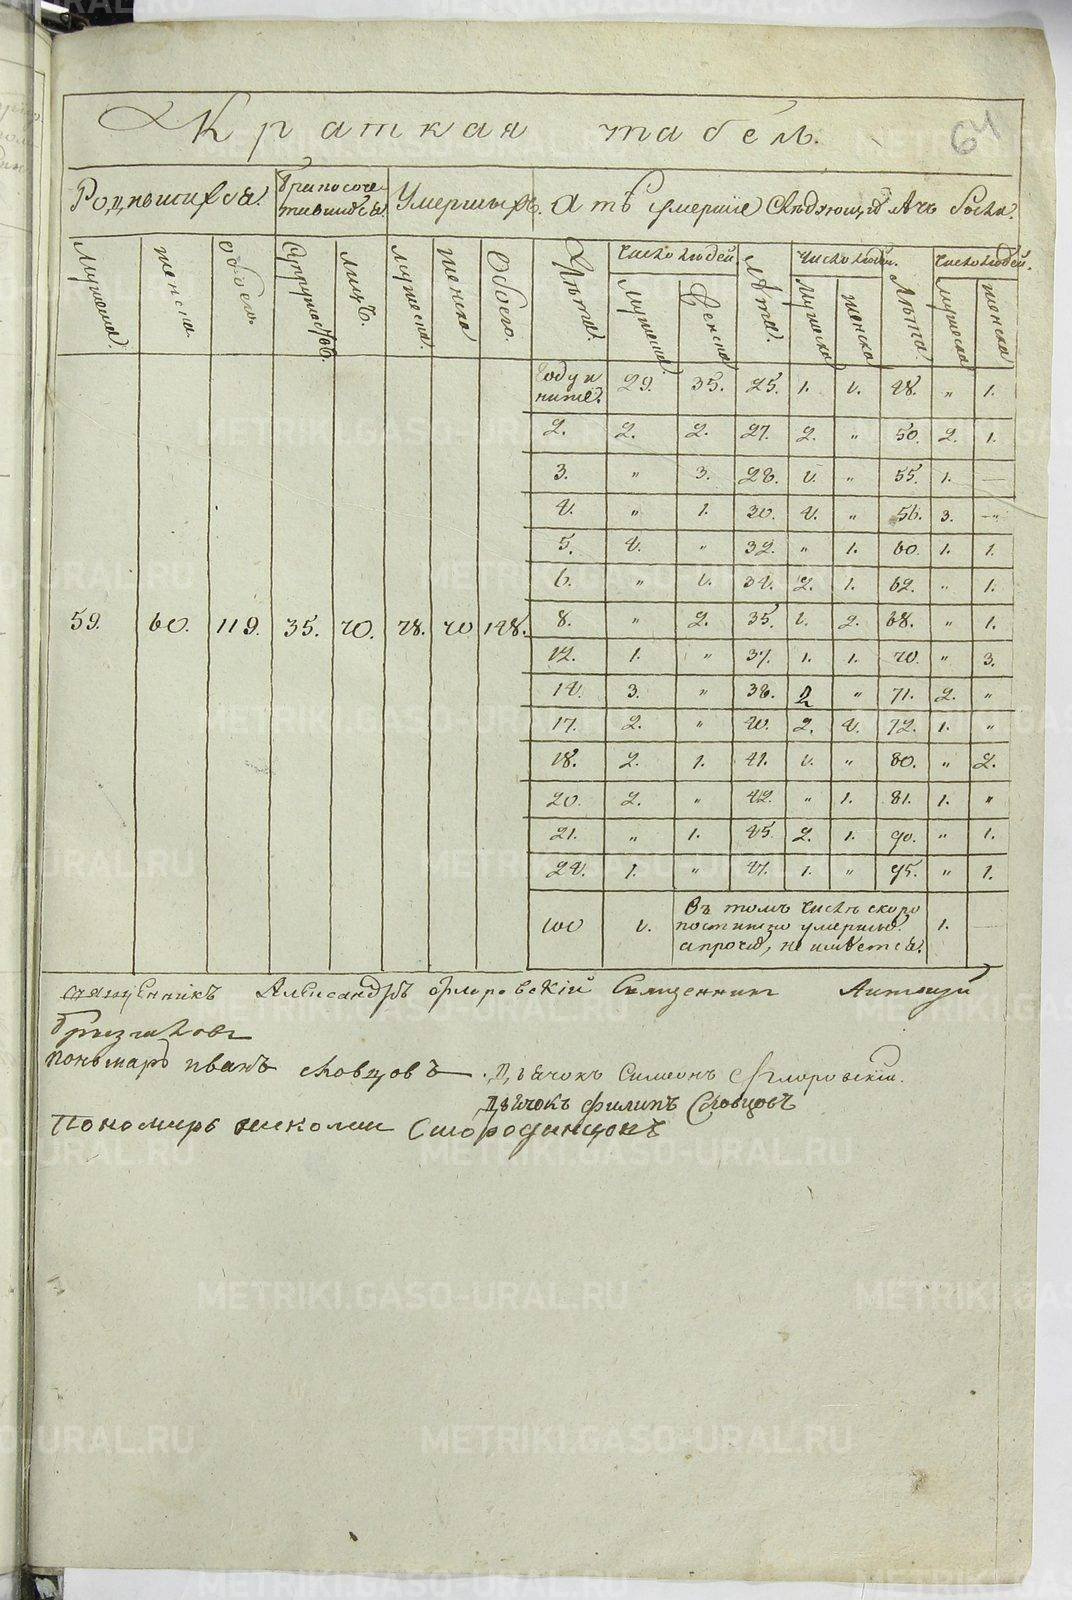 Краткая табель.
64
Родившихся.
Бракосоче-
тавшихся
Умершыхъ.
Мужеска.
женска.
обоего.
Супружествъ.
лицъ.
мужеска.
женска
Обоего.
Лѣта.
число людей.
Мужеска
Женска
Лѣта.
число людей.
Мужеска
женска
Лѣта
число людей.
Мужеска
женска
59. 60. 119. 35. 70. 78. 70 148.
Году и
ниже. 29. 35. 25. 1. 48. „ 1.
2. 2. 2. 27. 2. „ 50. 2. 1.
3. „ 3. 28. „ 55. 1. —
4. „ 1. 30. 4. „ 56. 3. —
5. 4. „ 32. „ 1. 60. 1. 1.
6. „ 34. 2. 1. 62. „ 1.
8. „ 2. 35. 2. 68. „ 1.
12. 1. „ 37. 1. 1. 70. „ 3.
14. 3. „ 38. 2 „ 71. 2. „
17. 2. „ 40. 2. 4. 72. 1. „
18. 2. 1. 41. „ 80. „ 2.
20. 2. „ 42. „ 1. 81. 1. „
21. „ 1. 45. 2. 1. 90. „ 1.
24. 1. „ 47. 1. „ 95. „ 1.
Въ томъ числѣ скоро
постижно умершыхъ 1. —
а прочіе, не имѣется.
священникъ Александръ Флоровскій Священникъ
пономарь иванъ словцовъ Дьячокъ Симеонъ Флоровскій.
Дьячокъ филипъ Словцовъ
Пономарь николаи
METRIKI.GASO-URAL.RU